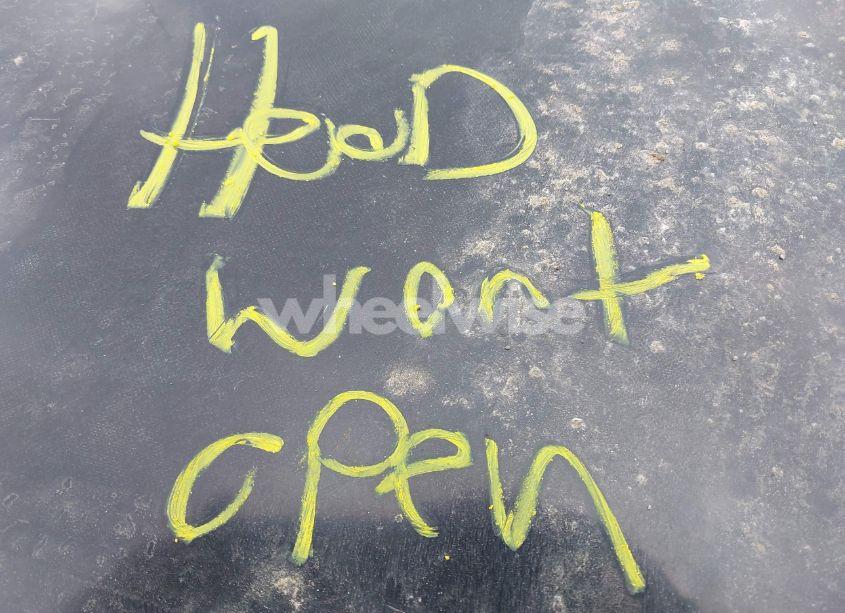 HooD
wont
open
wheelwise